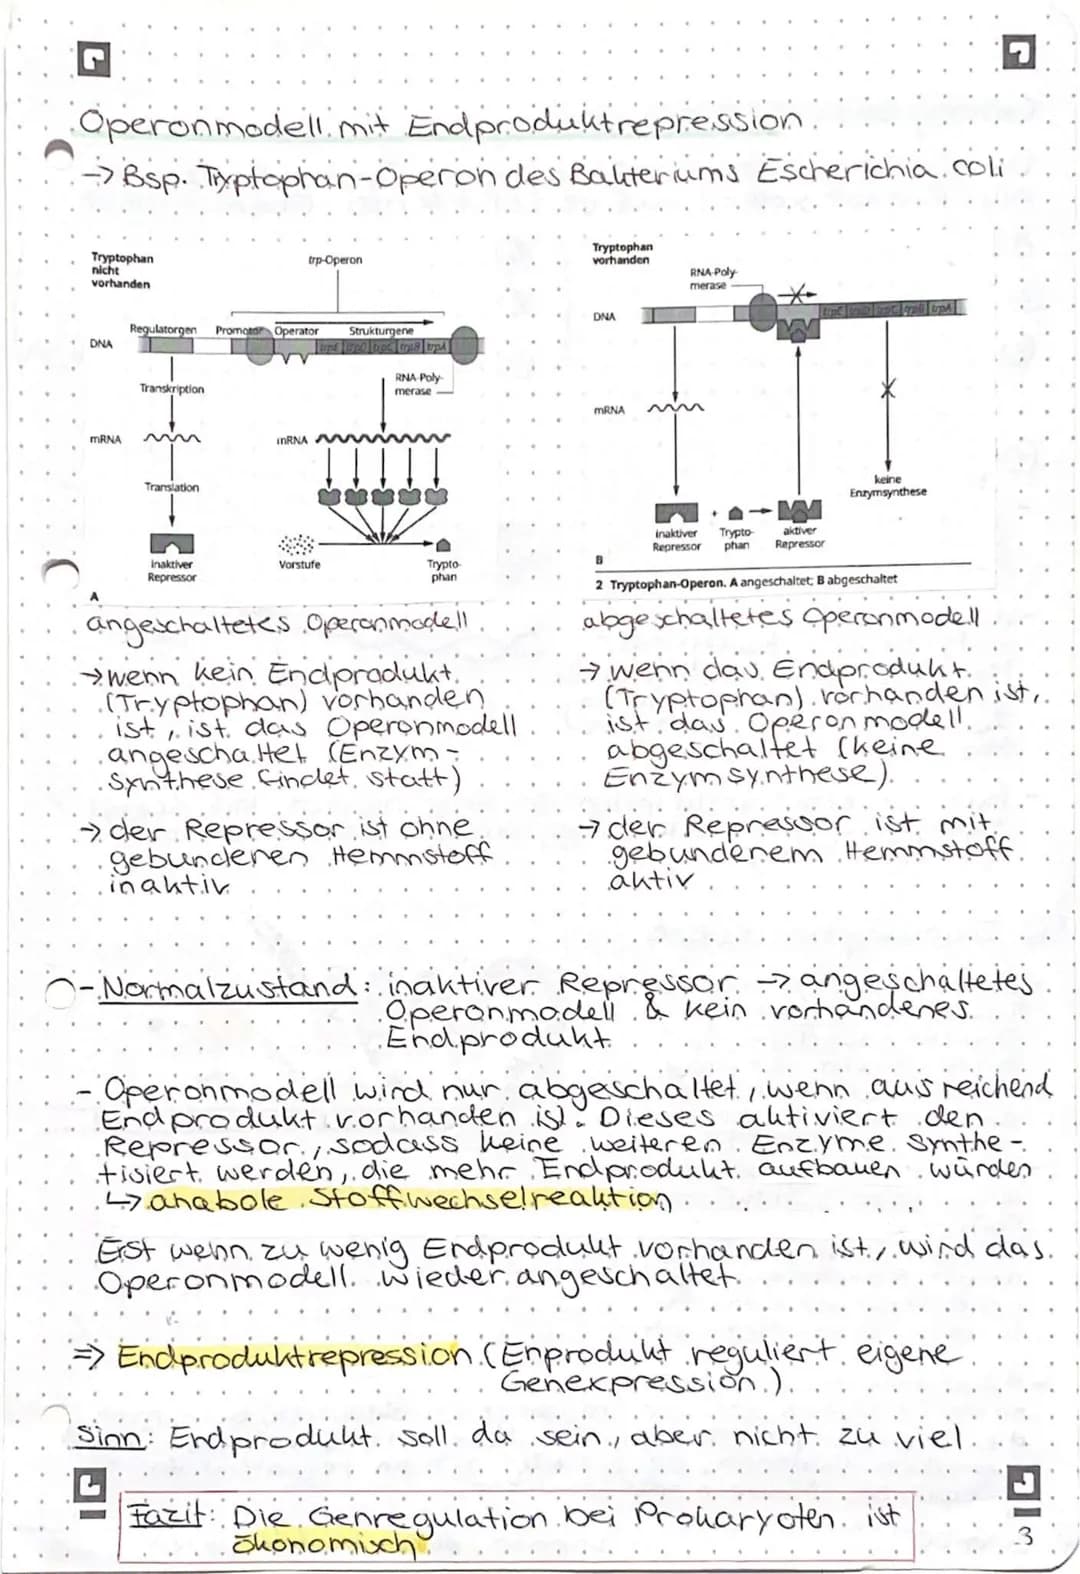 Operonmodell mit Endproduktrepression
→ Bsp. Tryptophan-Operon des Bakteriums Escherichia coli
Tryptophan
nicht
vorhanden
trp-Operon
Regulatorgen Promotor Operator Strukturgene
DNA
trpE trpD trpC trpB trpA
RNA-Poly-
merase
Transkription
mRNA
mRNA
Translation
inaktiver
Repressor
Vorstufe
Trypto-
phan
A
Tryptophan
vorhanden
RNA-Poly-
merase
DNA
trpE trpD trpC trpB trpA
mRNA
keine
Enzymsynthese
inaktiver
Repressor
+
Trypto-
phan
aktiver
Repressor
B
2 Tryptophan-Operon. A angeschaltet; B abgeschaltet
angeschaltetes Operonmodell
→ wenn kein Endprodukt
(Tryptophan) vorhanden
ist, ist das Operonmodell
angeschaltet (Enzym-
synthese findet statt)
→ der Repressor ist ohne
gebundenen Hemmstoff
inaktiv
abgeschaltetes Operonmodell
→ wenn das Endprodukt
(Tryptophan) vorhanden ist,
ist das Operonmodell
abgeschaltet (keine
Enzymsynthese)
→ der Repressor ist mit
gebundenem Hemmstoff
aktiv
- Normalzustand: inaktiver Repressor → angeschaltetes
Operonmodell & kein vorhandenes
Endprodukt
- Operonmodell wird nur abgeschaltet, wenn ausreichend
Endprodukt vorhanden ist. Dieses aktiviert den
Repressor, sodass keine weiteren Enzyme synthe-
tisiert werden, die mehr Endprodukt aufbauen würden
↳ anabole Stoffwechselreaktion
Erst wenn zu wenig Endprodukt vorhanden ist, wird das
Operonmodell wieder angeschaltet
⇒ Endproduktrepression (Enprodukt reguliert eigene
Genexpression)
Sinn: Endprodukt soll da sein, aber nicht zu viel
Fazit: Die Genregulation bei Prokaryoten ist
ökonomisch
3